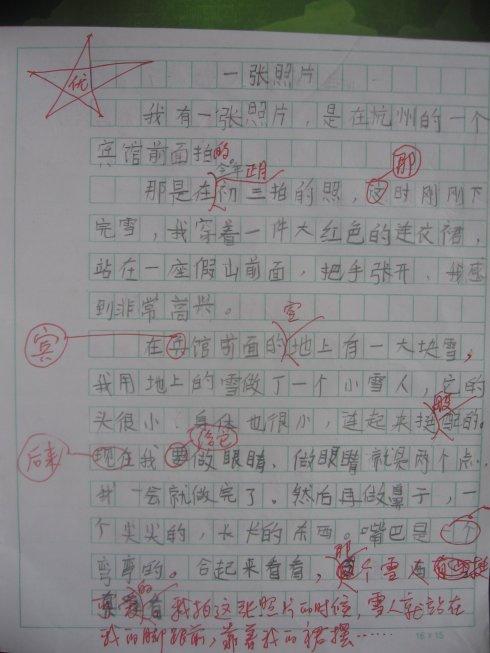 优
一张照片
我有一张照片，是在杭州的一个
宾馆前面拍的。
今年正月
那
那是在初三拍的照，这时刚刚下
完雪，我穿着一件大红色的连衣裙，
站在一座假山前面，把手张开，我感
到非常高兴。
空
宾
在宾馆前面的地上有一大块雪，
我用地上的雪做了一个小雪人，它的
头很小，身体也很小，连起来挺配的。
后来
给它
现在我要做眼睛，做眼睛就是两个点，
我一会就做完了。然后再做鼻子，一
个尖尖的，长长的东西。嘴巴是一个
弯弯的。合起来看看，
那
个雪
我拍这张照片的时候，雪人就站在
我的脚跟前，靠着我的裙摆……
16×15